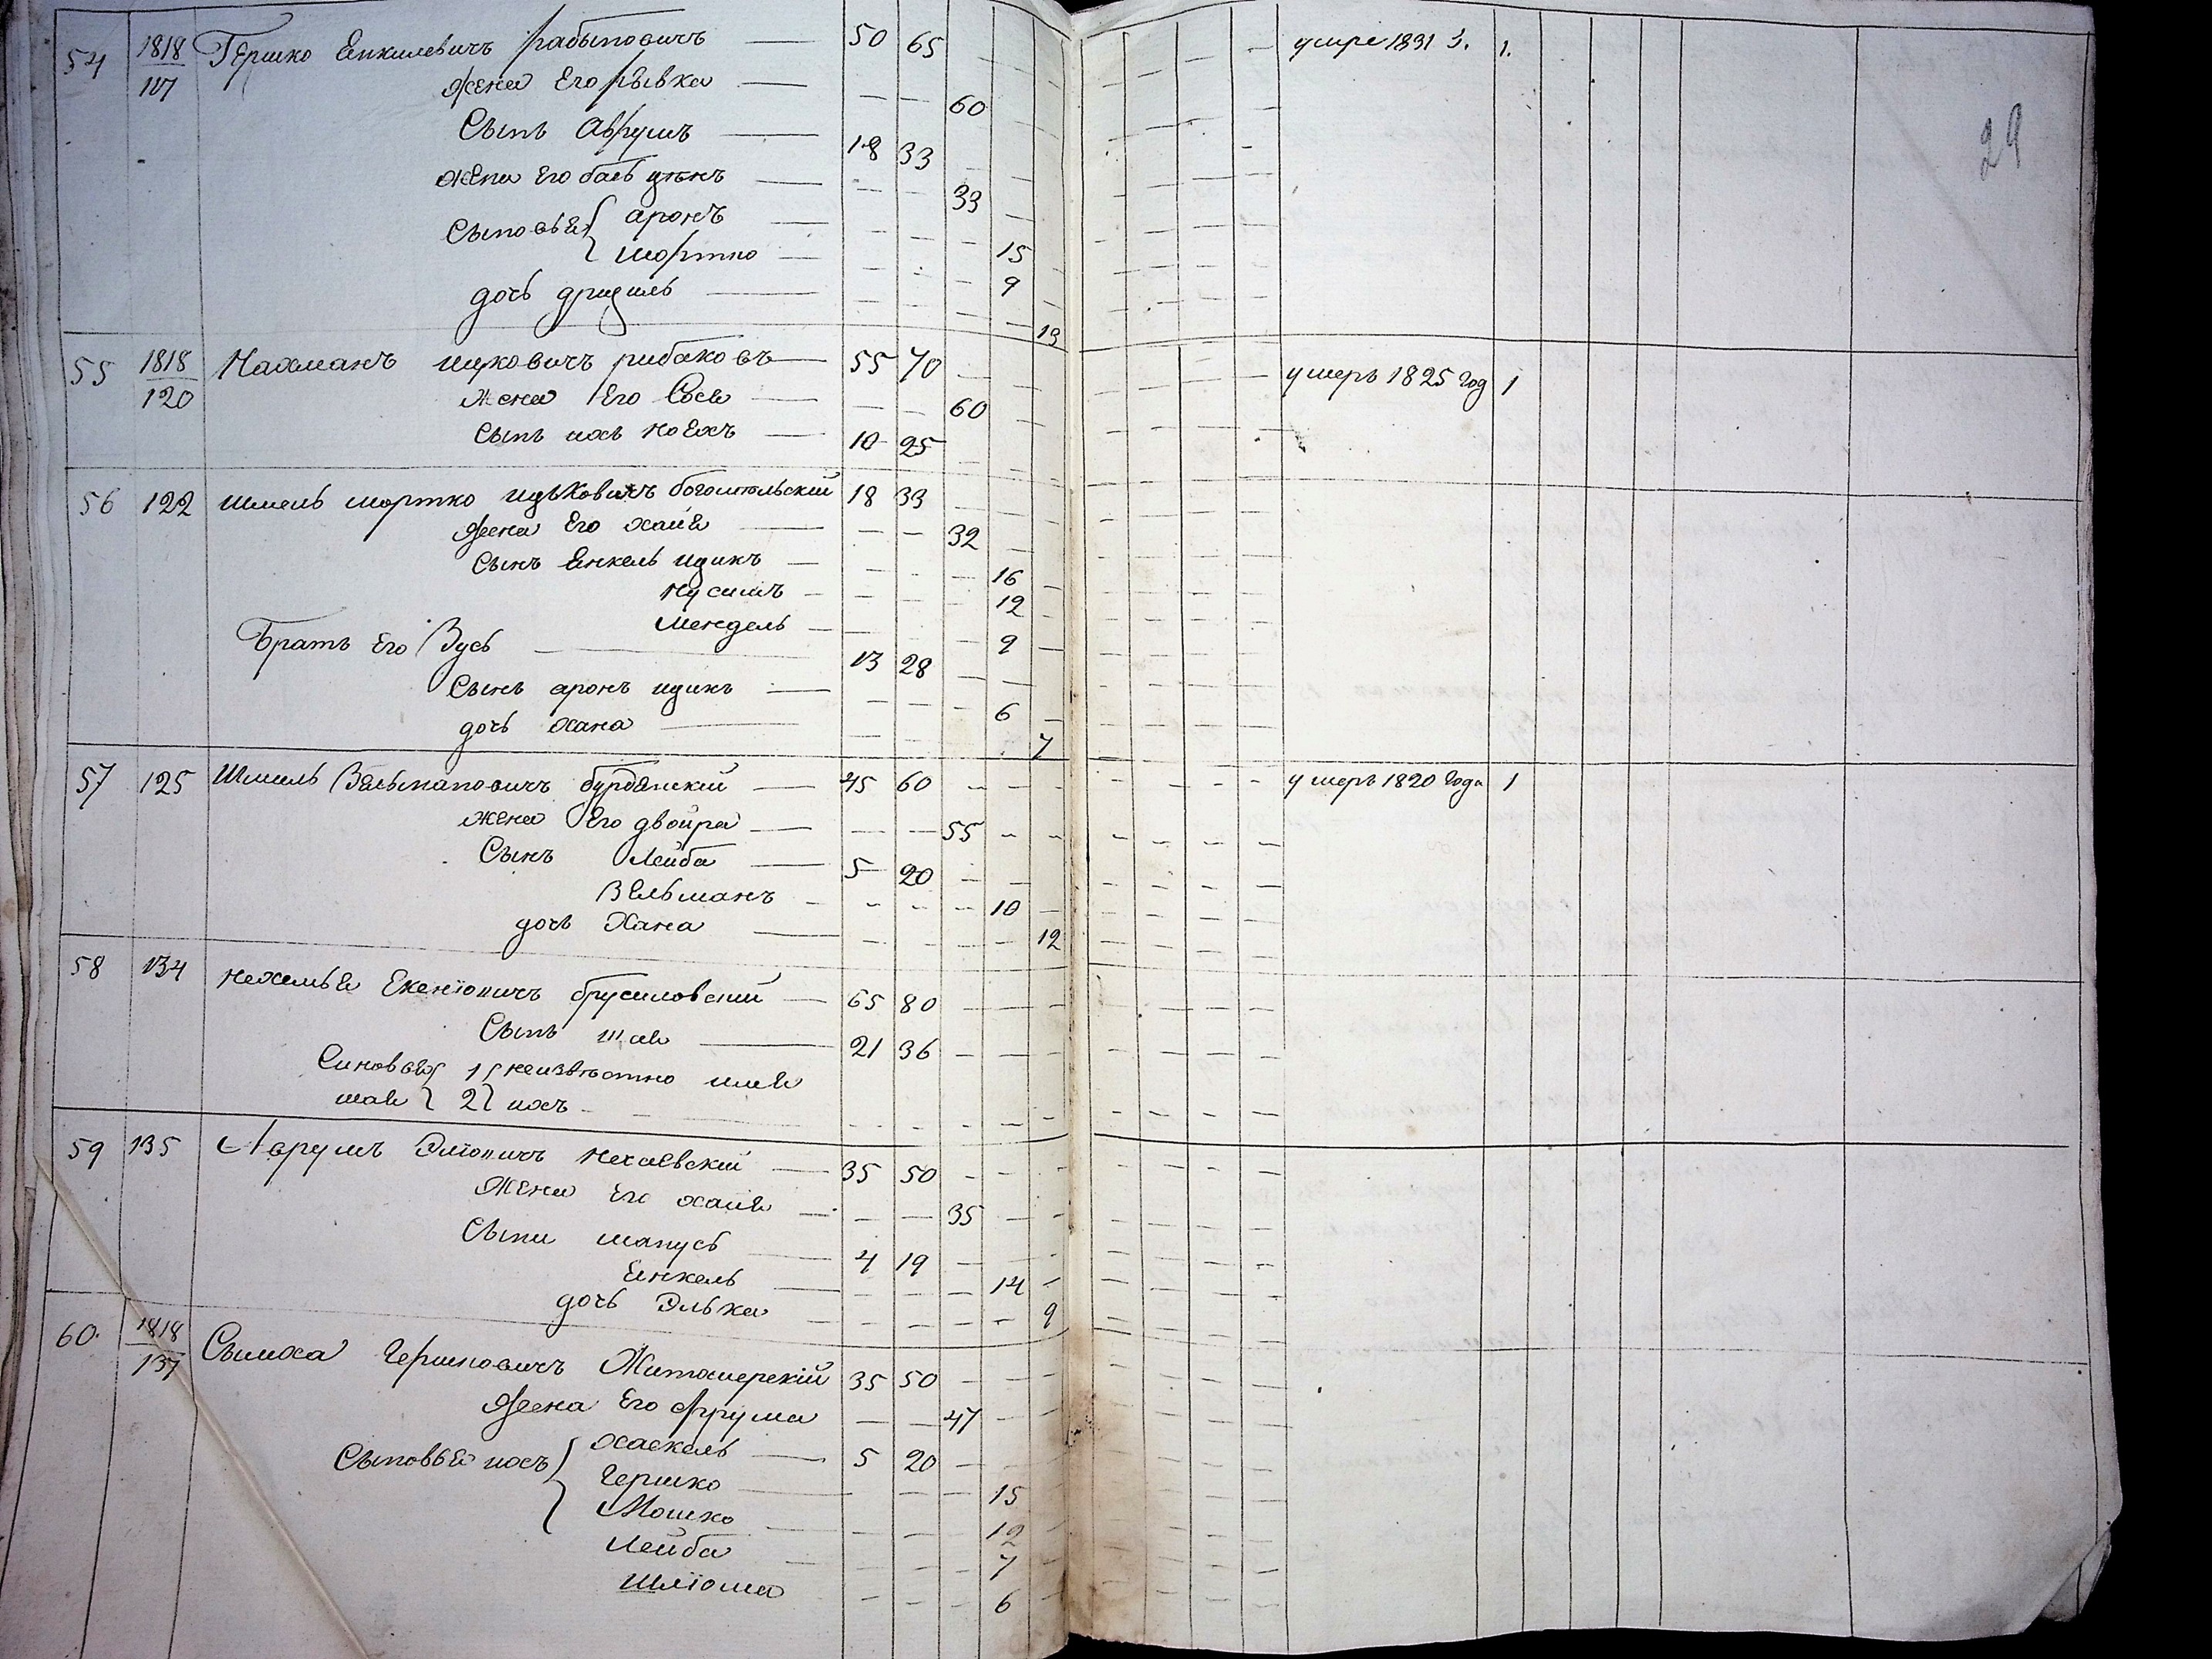 54 1818/117 Гершко Енкилевичъ рабыновичъ — 50 65 умре 1831 г. 1.
29
жена Его рывка — 60
Сынъ Аврумъ — 18 33
жена Его бась — 33
Сыновья { аронъ — 15
мортко — 9
дочь — 13
55 1818/120 Нахманъ ицковичъ рибаковъ — 55 70 умеръ 1825 год 1
жена Его Сося — 60
Сынъ ихъ Ноехъ — 10 25
56 122 Шмель мортко идьковичъ богопольский 18 33
жена Его хайя — 32
Сынъ Енкель ицикъ — 16
Нусимъ — 12
Мендель — 9
Братъ Его Зусь — 13 28
Сынъ аронъ ицикъ — 6
дочь Хана — 7
57 125 Шмиль Зельмановичъ — 45 60 умеръ 1820 Года 1
жена Его двойра — 55
Сынъ Лейба — 5 20
Зельманъ — 10
дочь Хана — 12
58 134 Нехемья брусиловский — 65 80
Сынъ шая — 21 36
Синовья { 1 { неизвестно имя
шаи } 2 } ихъ
59 135 Аврумъ Нехаевский — 35 50
Жена Его хайя — 35
Сыни манусь — 4 19
Енкель — 14
дочь Элька — 9
60. 1818/137 Сымха Гершковичъ Житомерскій 35 50
жена Его фрума — 47
Сыновья ихъ { хаскель — 5 20
Гершко — 15
Мошко — 12
Лейба — 7
Шліома — 6